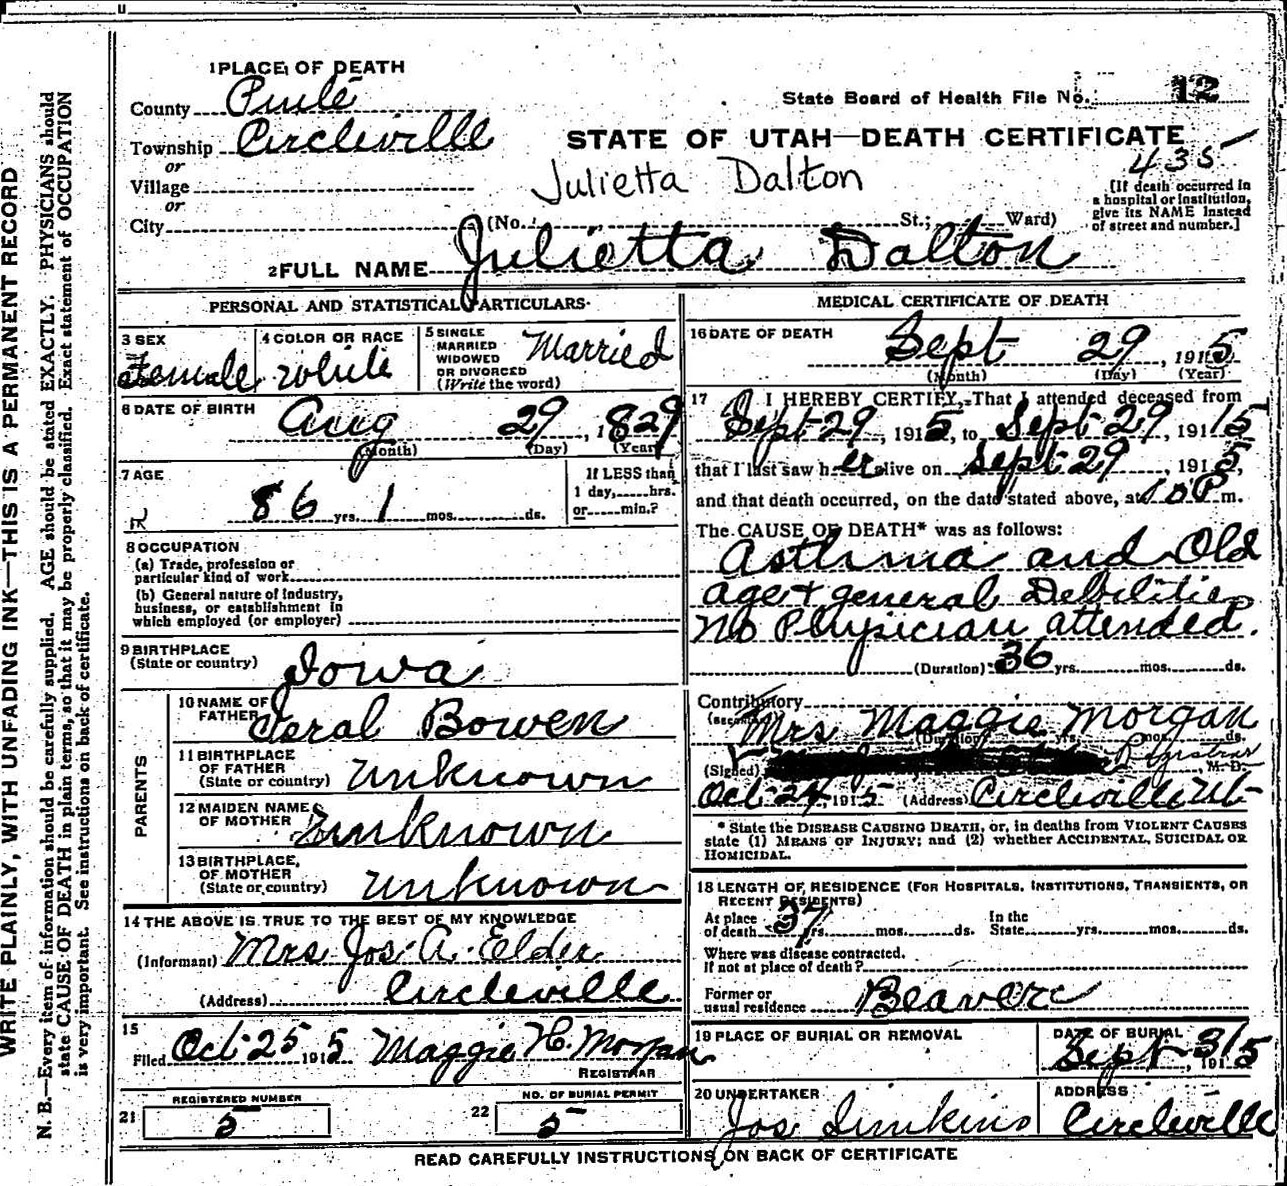 WRITE PLAINLY, WITH UNFADING INK—THIS IS A PERMANENT RECORD
N. B.—Every item of information should be carefully supplied. AGE should be stated EXACTLY. PHYSICIANS should
state CAUSE OF DEATH in plain terms, so that it may be properly classified. Exact statement of OCCUPATION
is very important. See instructions on back of certificate.
1 PLACE OF DEATH
County Piute
State Board of Health File No. 12
Township Circleville
STATE OF UTAH—DEATH CERTIFICATE
435
or
Village
Julietta Dalton
[If death occurred in
a hospital or institution,
give its NAME instead
of street and number.]
or
City (No. St.; Ward)
2 FULL NAME Julietta Dalton
PERSONAL AND STATISTICAL PARTICULARS
3 SEX
Female
4 COLOR OR RACE
White
5 SINGLE
MARRIED
WIDOWED
OR DIVORCED
(Write the word)
Married
6 DATE OF BIRTH
Aug 29, 1829
(Month) (Day) (Year)
7 AGE
86 yrs. 1 mos. ds.
If LESS than
1 day, hrs.
or min.?
8 OCCUPATION
(a) Trade, profession or
particular kind of work
(b) General nature of industry,
business, or establishment in
which employed (or employer)
9 BIRTHPLACE
(State or country) Iowa
PARENTS
10 NAME OF
FATHER Bowen
11 BIRTHPLACE
OF FATHER
(State or country) unknown
12 MAIDEN NAME
OF MOTHER unknown
13 BIRTHPLACE
OF MOTHER
(State or country) unknown
14 THE ABOVE IS TRUE TO THE BEST OF MY KNOWLEDGE
(Informant) Mrs Jos. A. Elder
(Address) Circleville
15
Filed Oct 25 1915 Maggie H. Morgan
REGISTRAR
21 REGISTERED NUMBER
5
22 NO. OF BURIAL PERMIT
5
MEDICAL CERTIFICATE OF DEATH
16 DATE OF DEATH
Sept 29, 1915
(Month) (Day) (Year)
17 I HEREBY CERTIFY, That I attended deceased from
Sept 29, 1915, to Sept 29, 19115
that I last saw her alive on Sept 29, 1915,
and that death occurred, on the date stated above, at 10 P m.
The CAUSE OF DEATH* was as follows:
Asthma and Old
age & general Debilities
No Physician attended.
(Duration) 36 yrs. mos. ds.
Contributory
(Secondary)
Mrs Maggie Morgan
(Duration) yrs. mos. ds.
(Signed) Registrar M. D.
Oct 24, 1915 (Address) Circleville Ut
* State the DISEASE CAUSING DEATH, or, in deaths from VIOLENT CAUSES
state (1) MEANS OF INJURY; and (2) whether ACCIDENTAL, SUICIDAL OR
HOMICIDAL.
18 LENGTH OF RESIDENCE (FOR HOSPITALS, INSTITUTIONS, TRANSIENTS, OR
RECENT RESIDENTS)
At place
of death 37 yrs. mos. ds.
In the
State yrs. mos. ds.
Where was disease contracted.
If not at place of death?
Former or
usual residence Beaver
19 PLACE OF BURIAL OR REMOVAL
DATE OF BURIAL
Sept 31, 1915
20 UNDERTAKER
Jos Simkins
ADDRESS
Circleville
READ CAREFULLY INSTRUCTIONS ON BACK OF CERTIFICATE